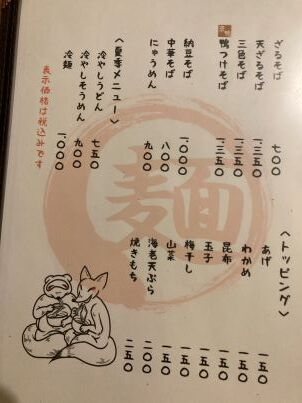 ざるそば 七〇〇
天ざるそば 一、三五〇
三色そば 一、三五〇
鴨つけそば 一、三五〇
納豆そば 一、〇〇〇
中華そば 八〇〇
にゅうめん 九〇〇
〈夏季メニュー〉
冷やしうどん 七五〇
冷やしそうめん 九〇〇
冷麺 一、〇〇〇
表示価格は税込みです
麺
〈トッピング〉
あげ 一五〇
わかめ 一五〇
昆布 一五〇
玉子 一五〇
梅干し 一五〇
山菜 一五〇
海老天ぷら 二〇〇
焼きもち 二五〇